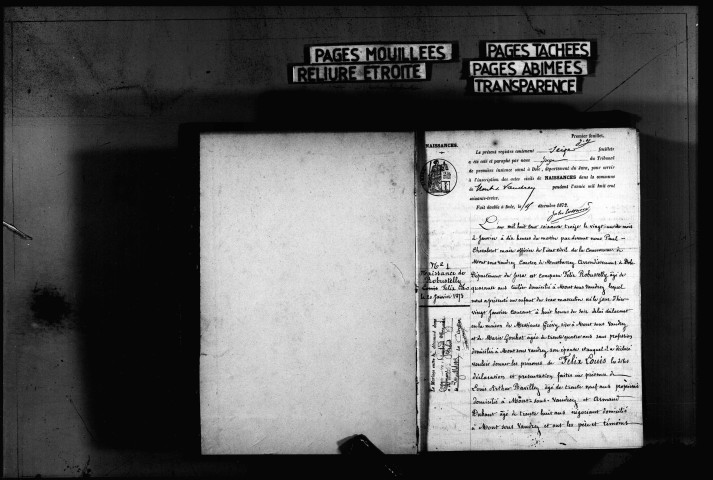 PAGES MOUILLEES
RELIURE ETROITE
PAGES TACHEES
PAGES ABIMEES
TRANSPARENCE
Premier feuillet.
NAISSANCES.
Le présent registre contenant seize feuillets
a été coté et paraphé par nous juge du Tribunal
de première instance séant à Dole, département du Jura, pour servir
à l'inscription des actes civils de NAISSANCES dans la commune
de Mont s/ Vaudrey pendant l'année mil huit cent
soixante-treize.
Fait double à Dole, le décembre 1872.
L'an mil huit cent soixante treize le vingt-un du mois
de Janvier à dix heures du matin par devant nous Paul
maire officier de l'état civil de la Commune de
Mont sous Vaudrey Canton de Montbarrey Arrondissement de Dole
Département du Jura est comparu Félix Robustelly âgé de
quarante ans domicilié à Mont sous Vaudrey lequel
nous a présenté un enfant du sexe masculin né le jour d'hier
vingt Janvier courant à huit heures du soir de lui déclarant
en la maison de Grévy, sise à Mont sous Vaudrey
et de Marie âgée de trente quatre ans sans profession
domiciliée à Mont sous Vaudrey son épouse et auquel il a déclaré
vouloir donner les prénoms de Felix Louis les dites
déclaration et présentation faites en présence de
Louis Arthur âgé de trente neuf ans propriétaire
domicilié à Mont-sous-Vaudrey et Armand
âgé de trente huit ans négociant domicilié
à Mont sous Vaudrey et ont les père et témoins
No 1
Naissance de
Robustelly
Louis Félix
le 20 Janvier 1873